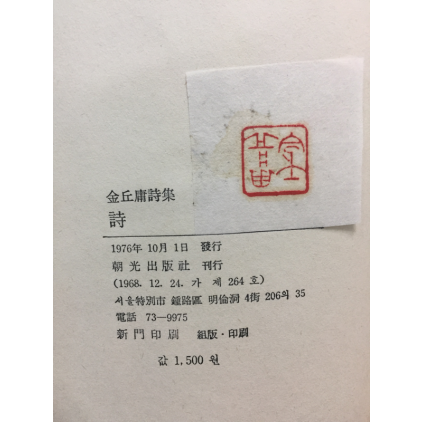 金丘庸詩集
詩
1976年 10月 1日 發行
朝光出版社 刊行
(1968. 12. 24. 가 제 264 호)
서울特別市 鍾路區 明倫洞 4街 206의 35
電話 73—9975
新門印刷 組版·印刷
값 1,500 원